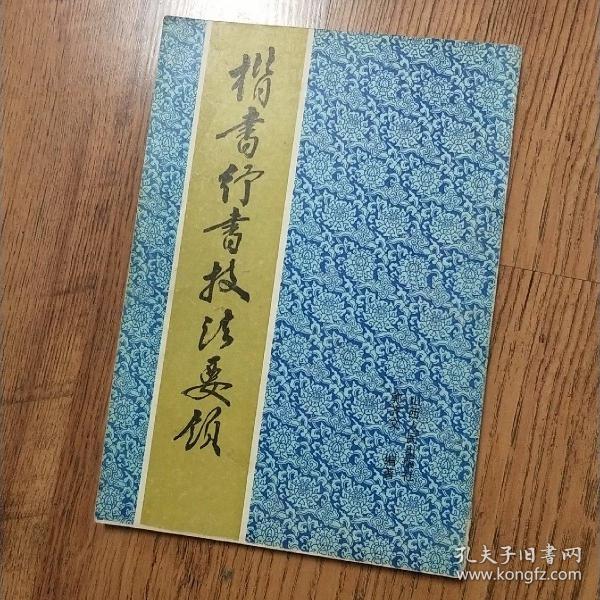 楷书行书技法要领
编著
孔夫子旧书网
www.kongfz.com